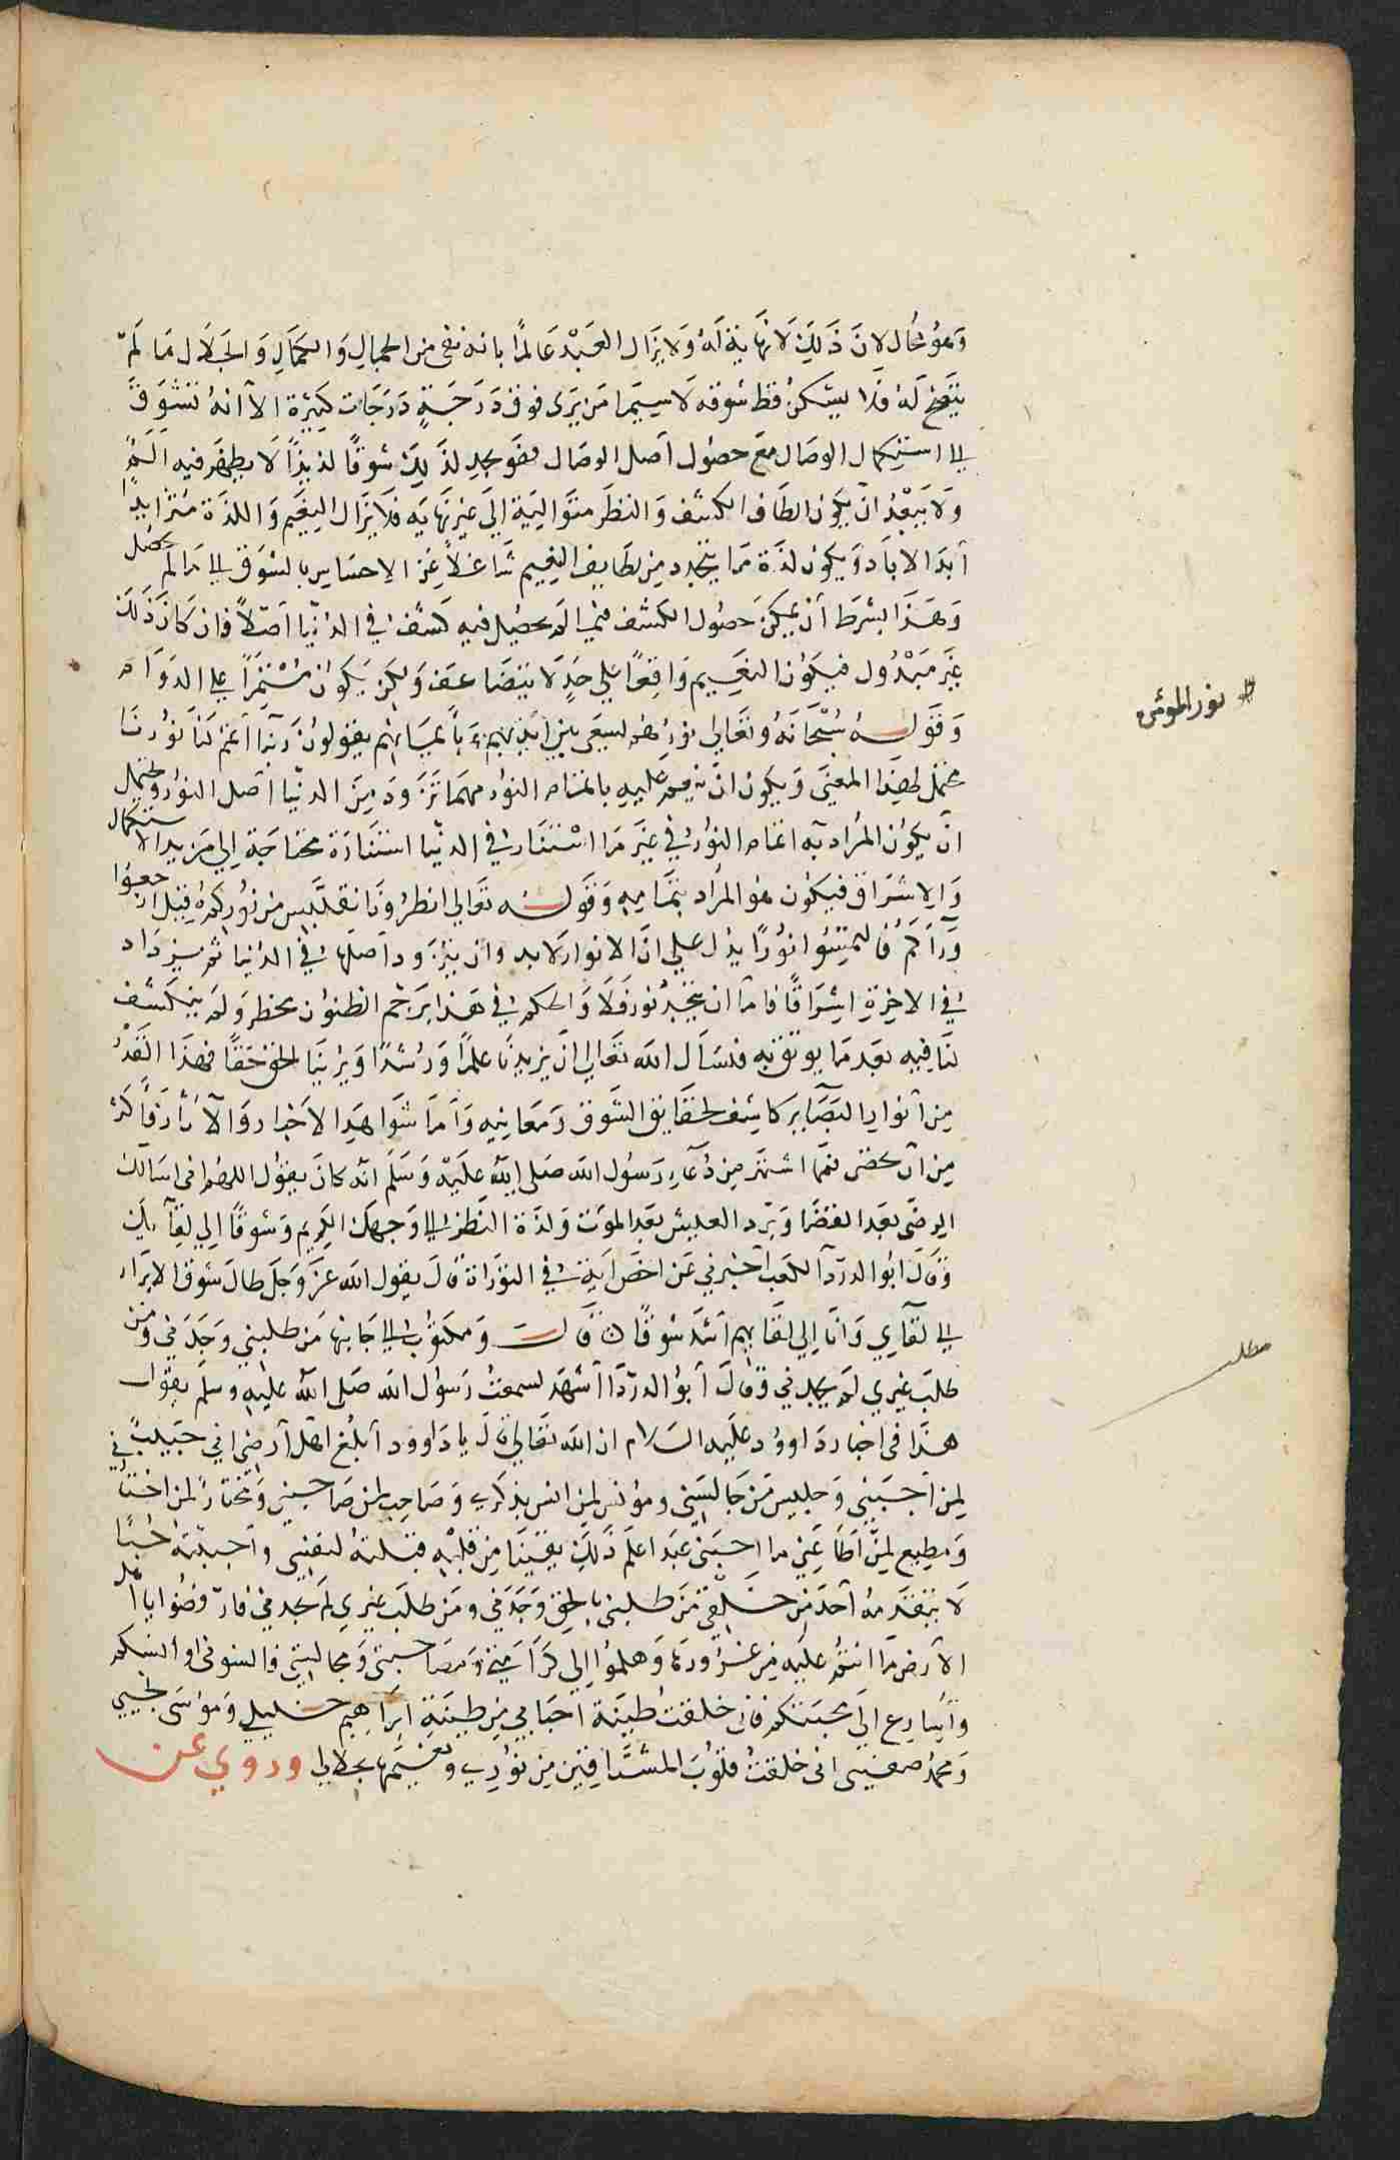 وَهُوَ مُحَال لانَ ذَلِكَ لَا نِهَايَةَ لَهُ وَلا يَزَال العَبْد عَالمًا بانه بقي من الجمَالِ وَالكمَالِ وَالجَلَال مَا لَمْ
يَتَّضِح لَهُ فلا يسْكنُ قط شوقه لا سيمَا مَن يَرَى فوق دَرَجَتهِ دَرَجَات كَثِيرة الا انهُ تشَوقَ
الى استِكمال الوصَال معَ حصُول اصل الوصَال فهَو يجد لذَلِكَ شوقًا لذيذًا لا يظهَر فيه اَلَمٌ
وَلَا يَبْعُدُ أن يَكون الطَاف الكشف وَالنظَر متوَاليَة إلى غير نهَايَه فلا يَزَال النعِيَم وَاللذَة متزايدًا
أبَدَ الابَاد وَيكون لذَة مَا يتجدد مِن لطَايف النعِيم شَاغلاً عَن الاحسَاس بالشوَق الى مَا لَم يحصل
وَهَذَا بشرط أن يمكنَ حصُول الكشف فيما لم يحصل فيه كشف في الدنيَا اصلاً فان كانَ ذَلكَ
غيَر مَبْذُول فيكَون النعيم وَاقِعًا على حَدٍ لا يتضَاعف وَلكن يَكون مُسْتمَّرًا على الدوَام
وَقَولهُ سُبْحَانَهُ وتعَالى نورهم يسعَى بين ايديهم وَبأيمَانهم يقولونَ رَبنا اتمم لَنَا نوُرنَا
محتمل لهذَا المعنَى وَيكون ان ينعم عليهِ باتمام النوُر مهمَا تزَوَد مِنَ الدنيا اصل النوُر ويحتمل
ان يكوُن المرُاد به اتمام النوُر في غيَر مَا استنَار في الدنيا استنَارَة محتاجَة إلى مَزيد الاستكمال
وَالاشرَاق فيكون هوَ المرَاد بتمَامِهِ وَقولهُ تعَالى انظرُونَا نقتَبِس من نوُركم قِيل ارجعوا
وَرَآءكمُ فالتمِسُوا نوُرًا يدُل على انَ الانوار لابد وان يتزَود اصلها في الدُنيا ثم يزدَاد
في الاخِرةِ إشرَاقًا فامَا ان يتجدَد نور فَلا وَالحكم في هَذا برَجم الظنوُن مخطر وَلم ينكشف
لنَا فيه بَعد مَا يوثق به فنسَأَل الله تعَالى انَ يَزيدنَا علمًا وَرُشدًا وَيُرينَا الحق حَقًا فهذَا القَدْر
مِن انوَار البَصَآير كاشِف لحقَايق الشوق وَمَعَانِيه وَأمَا شوَاهِد الاخبَار وَالاثار فَاكثر
مِن ان تحصى فممَا اشتهر مِن دُعَآء رَسُول الله صَلى اللهُ عَلَيْهِ وَسَلم انه كانَ يقوُل اللهم انى اسَالك
الرضَى بعدَ القضَا وَبَرد العيش بَعدَ الموَت وَلذَة النظر الى وَجهكَ الكريم وَشوقًا إلى لِقَآئِكَ
وَقال ابُو الدردَآء لكعب اخبرني عَن اخصّ ايَة في التوَرَاة قالَ يقول الله عَزَّ وَجَلَّ طالَ شوق الابرَار
الى لِقَآءِي وَانَا إلى لقَايهم اشدُّ شوقًا ن قَالَ وَمكتوُب الى جَانبِها مَن طلبني وَجَدَني وَمَن
طلبَ غيري لم يجدني فقالَ أبوُ الدردَا أشهد لسمعتُ رَسوُل الله صَلى اللهُ عليهِ وسلم يقوُل
هذَا فى اخبار دَاووُد عليه السَلام ان الله تعَالى قالَ يا دَاوود ابلغ اهلَ أرضى اني حَبيب
لِمن أحبَنِي وَجليس مَن جَالسَني ومؤنس لِمن انس بذكري وَصَاحِب لمن صَاحبني وَمختار لمن اختارني
وَمطيع لِمَن أطَاعَني مَا احبَني عَبد اعلَم ذَلِكَ يقينًا مِن قلبهِ الا قبلتهُ لنفسِي واحببتهُ حُبًا
لا يتقدَمهُ أحَد من خلقي مَن طلبني بالحق وَجَدَني ومَن طلبَ غيري لم يجدني فارفضوُا يا أهل
الارض مَا انتمُ عليه مِن غرُورهَا وَهلموُا إلى كرَامَتي وَمصَاحبَتي وَمجَالستي وانسوا بى أوَانسكم
وَأسَارِع الى محبتكم فانى خلقتُ طينَة احبَابي مِن طينَةِ ابرَاهِيم خليلي وَموُسَى نجيي
وَمحمد صفيي انى خلقتُ قلوُبَ المشتَاقينَ مِن نوُري ونعمتهَا بجلالى وروي عن
نور المؤمن
مطلب